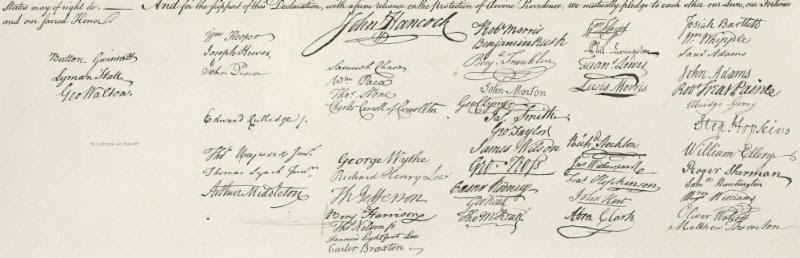 States may of right do. — And for the support of this Declaration, with a firm reliance on the protection of divine Providence, we mutually pledge to each other our Lives, our Fortunes
and our sacred Honor.
Button Gwinnett
Lyman Hall
Geo Walton.
Wm Hooper
Joseph Hewes,
John Penn
Edward Rutledge /.
Thos Heyward Junr.
Thomas Lynch Junr.
Arthur Middleton
John Hancock
Samuel Chase
Wm Paca
Thos Stone
Charles Carroll of Carrollton
George Wythe
Richard Henry Lee
Th Jefferson
Benj Harrison
Thos Nelson jr
Francis Lightfoot Lee
Carter Braxton
Robt Morris
Benjamin Rush
Benj Franklin
John Morton
Geo Clymer
Jas Smith
Geo Taylor
James Wilson
Geo. Ross
Caesar Rodney
Geo Read
Tho M:Kean
Wm Floyd
Phil. Livingston
Frans. Lewis
Lewis Morris
Richd Stockton
Jno Witherspoon
Fras Hopkinson
John Hart
Abra Clark
Josiah Bartlett
Wm Whipple
Saml Adams
John Adams
Robt Treat Paine
Elbridge Gerry
Step. Hopkins
William Ellery
Roger Sherman
Saml Huntington
Wm Williams
Oliver Wolcott
Matthew Thornton